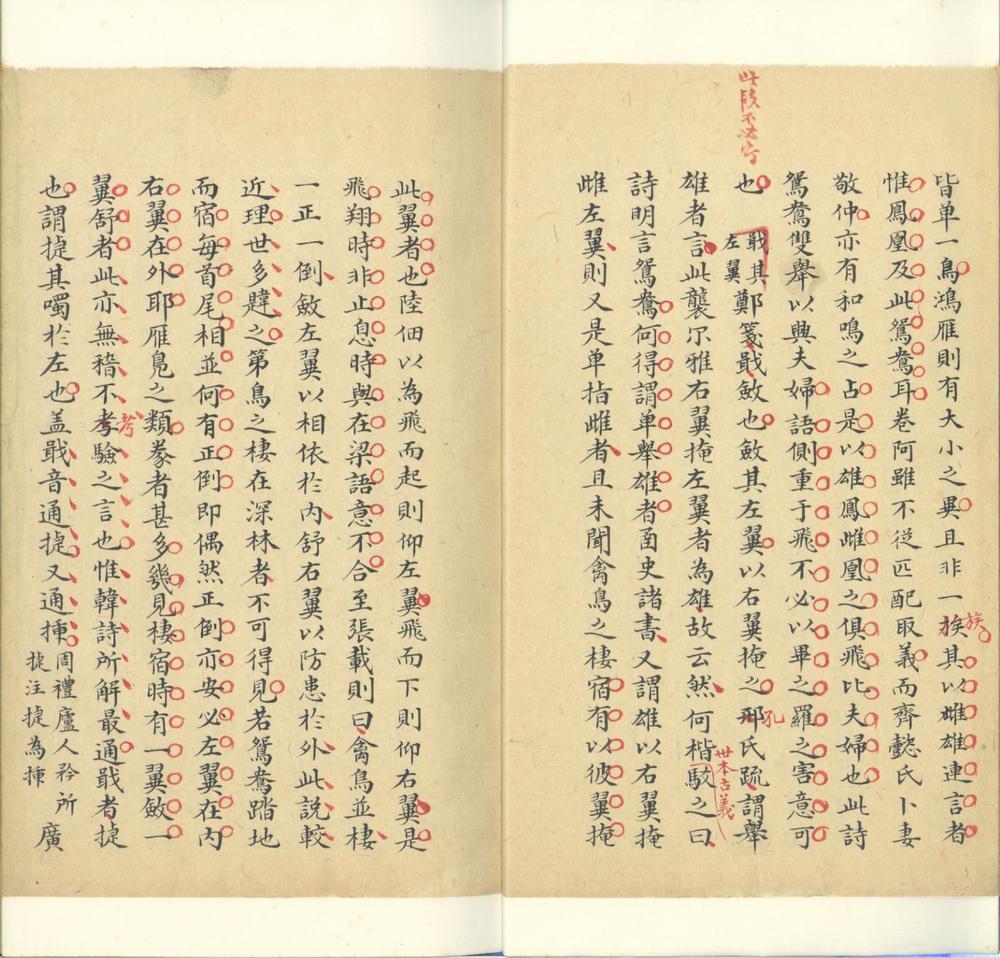 此段不必寫
皆単一鳥鴻雁則有大小之異且非一族其以雌雄連言者
族
惟鳳凰及此鴛鴦耳卷阿雖不從匹配取義而齊懿氏卜妻
敬仲亦有和鳴之占是以雄鳳雌凰之俱飛比夫婦也此詩
鴛鴦雙舉以興夫婦語側重于飛不必以畢之羅之害意可
也 戢其左翼 鄭箋戢斂也斂其左翼以右翼掩之邢氏疏謂舉
孔
雄者言此襲尔雅右翼掩左翼者為雄故云然何楷駮之曰
世本古義
詩明言鴛鴦何得謂単舉雄者函史諸書又謂雄以右翼掩
雌左翼則又是単指雌者且未聞禽鳥之棲宿有以彼翼掩
此翼者也陸佃以為飛而起則仰左翼飛而下則仰右翼是
飛翔時非止息時與在梁語意不合至張載則曰禽鳥並棲
一正一倒斂左翼以相依於內舒右翼以防患於外此說較
近理世多韙之第鳥之棲在深林者不可得見若鴛鴦踏地
而宿每首尾相並何有正倒即偶然正倒亦安必左翼在內
右翼在外耶雁鳧之類豢者甚多幾見棲宿時有一翼斂一
翼舒者此亦無稽不孝驗之言也惟韓詩所解最通戢者捷
考
也謂捷其噣於左也盖戢音通捷又通揷 周禮廬人矜所捷注捷為揷 廣